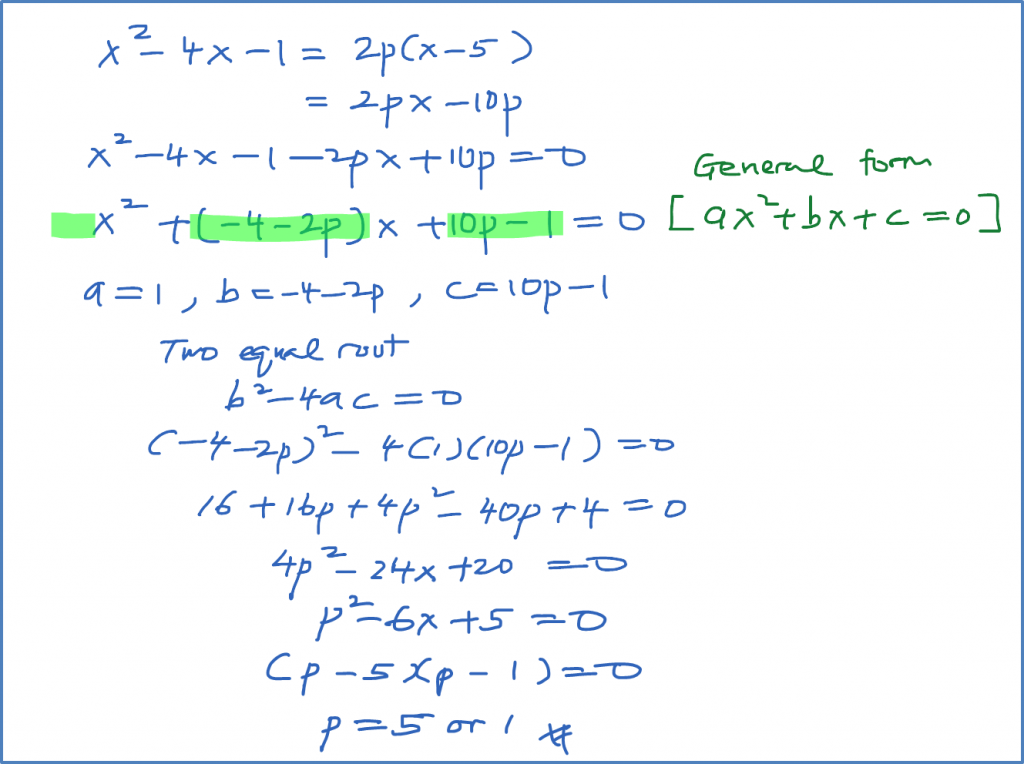 x² - 4x - 1 = 2p(x - 5)
= 2px - 10p
x² - 4x - 1 - 2px + 10p = 0
General form
x² + (-4 - 2p)x + 10p - 1 = 0 [ax² + bx + c = 0]
a = 1, b = -4 - 2p, c = 10p - 1
Two equal rout
b² - 4ac = 0
(-4 - 2p)² - 4(1)(10p - 1) = 0
16 + 16p + 4p² - 40p + 4 = 0
4p² - 24x + 20 = 0
p² - 6x + 5 = 0
(p - 5)(p - 1) = 0
p = 5 or 1 #